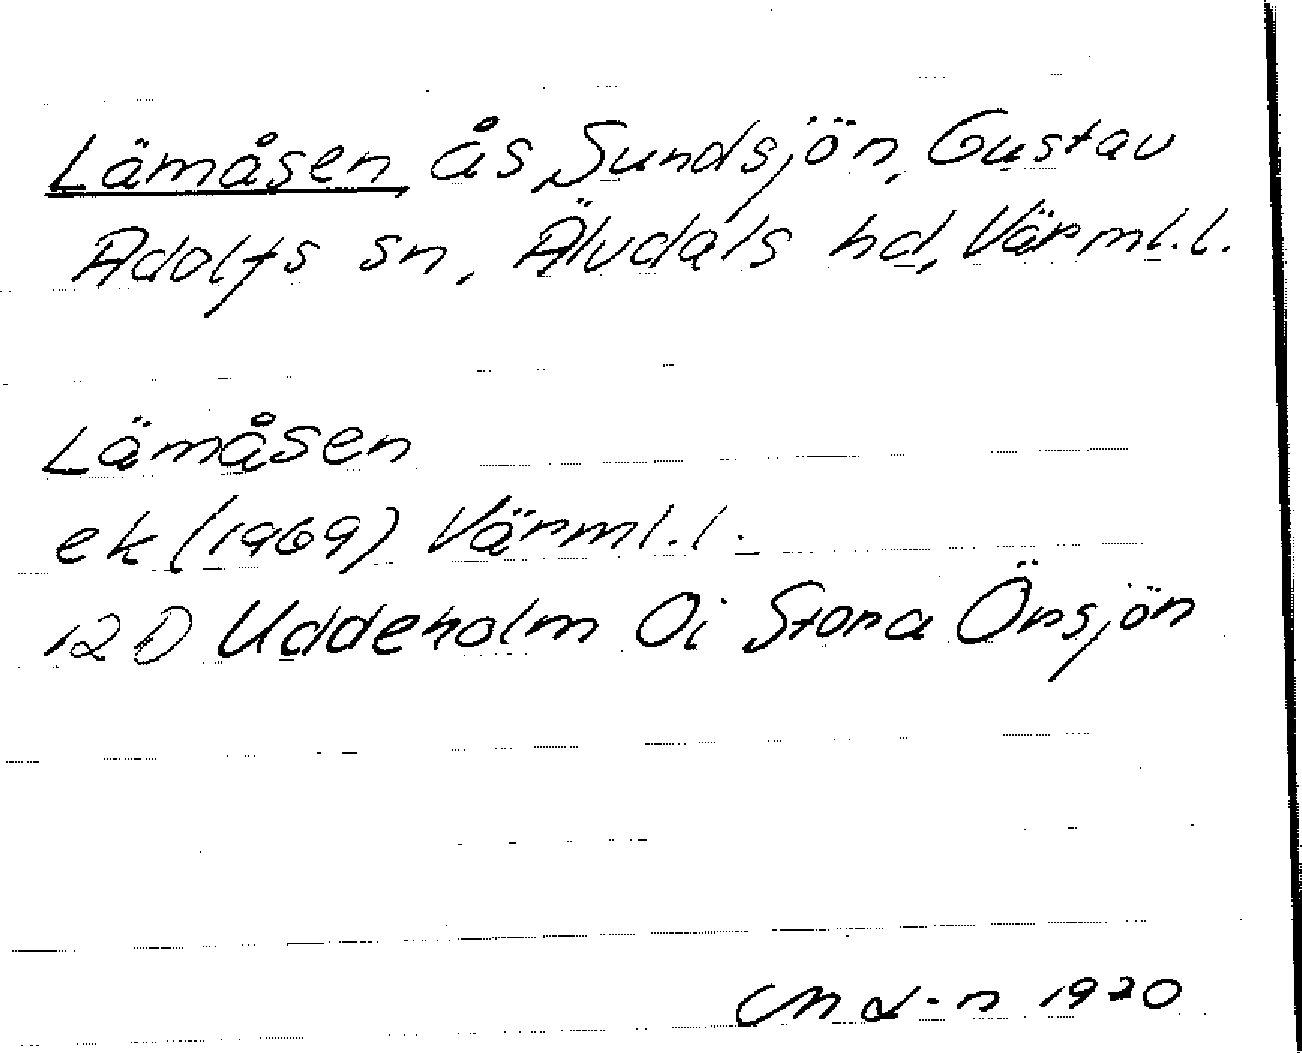 Lämåsen ås Sundsjön, Gustav
Adolfs sn, Älvdals hd, Värml.l.
Lämåsen
ek (1969) Värml.l.
12D Uddeholm 0i Stora Örsjön